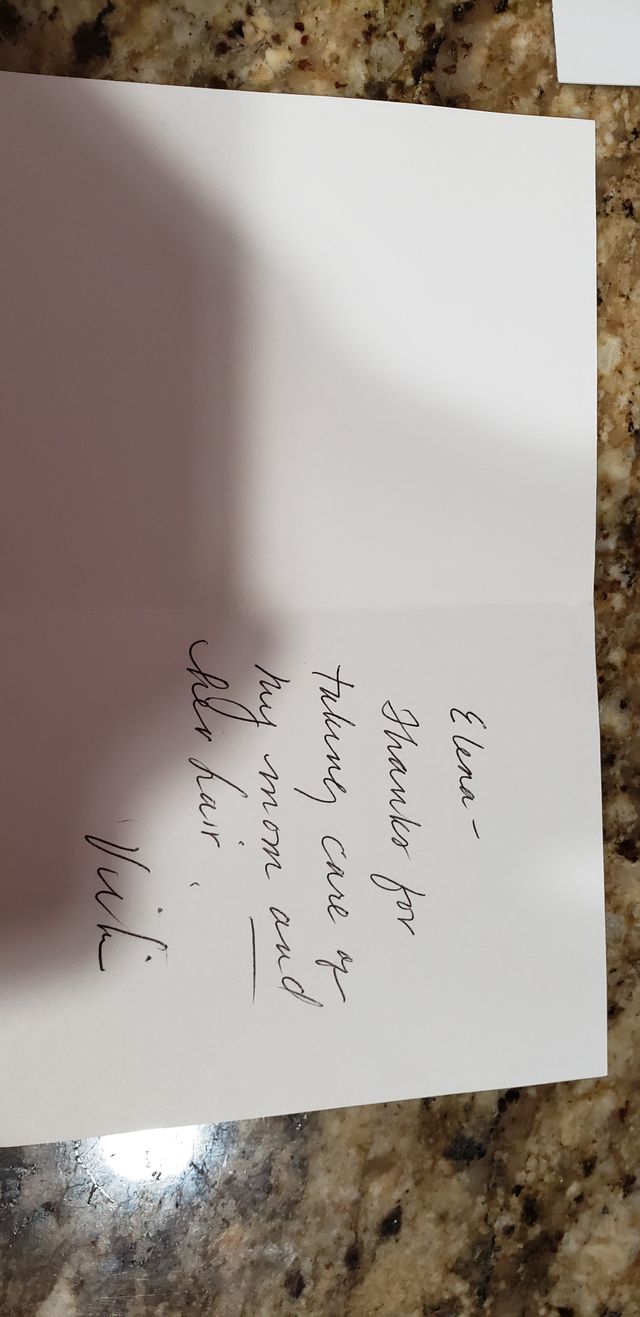 Elena -
Thanks for
taking care of
my mom and
her hair.